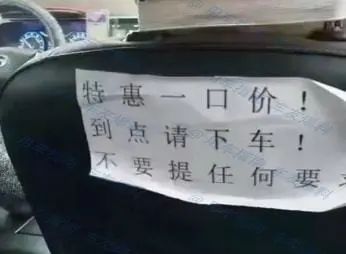 特惠一口价！
到点请下车！
不要提任何要